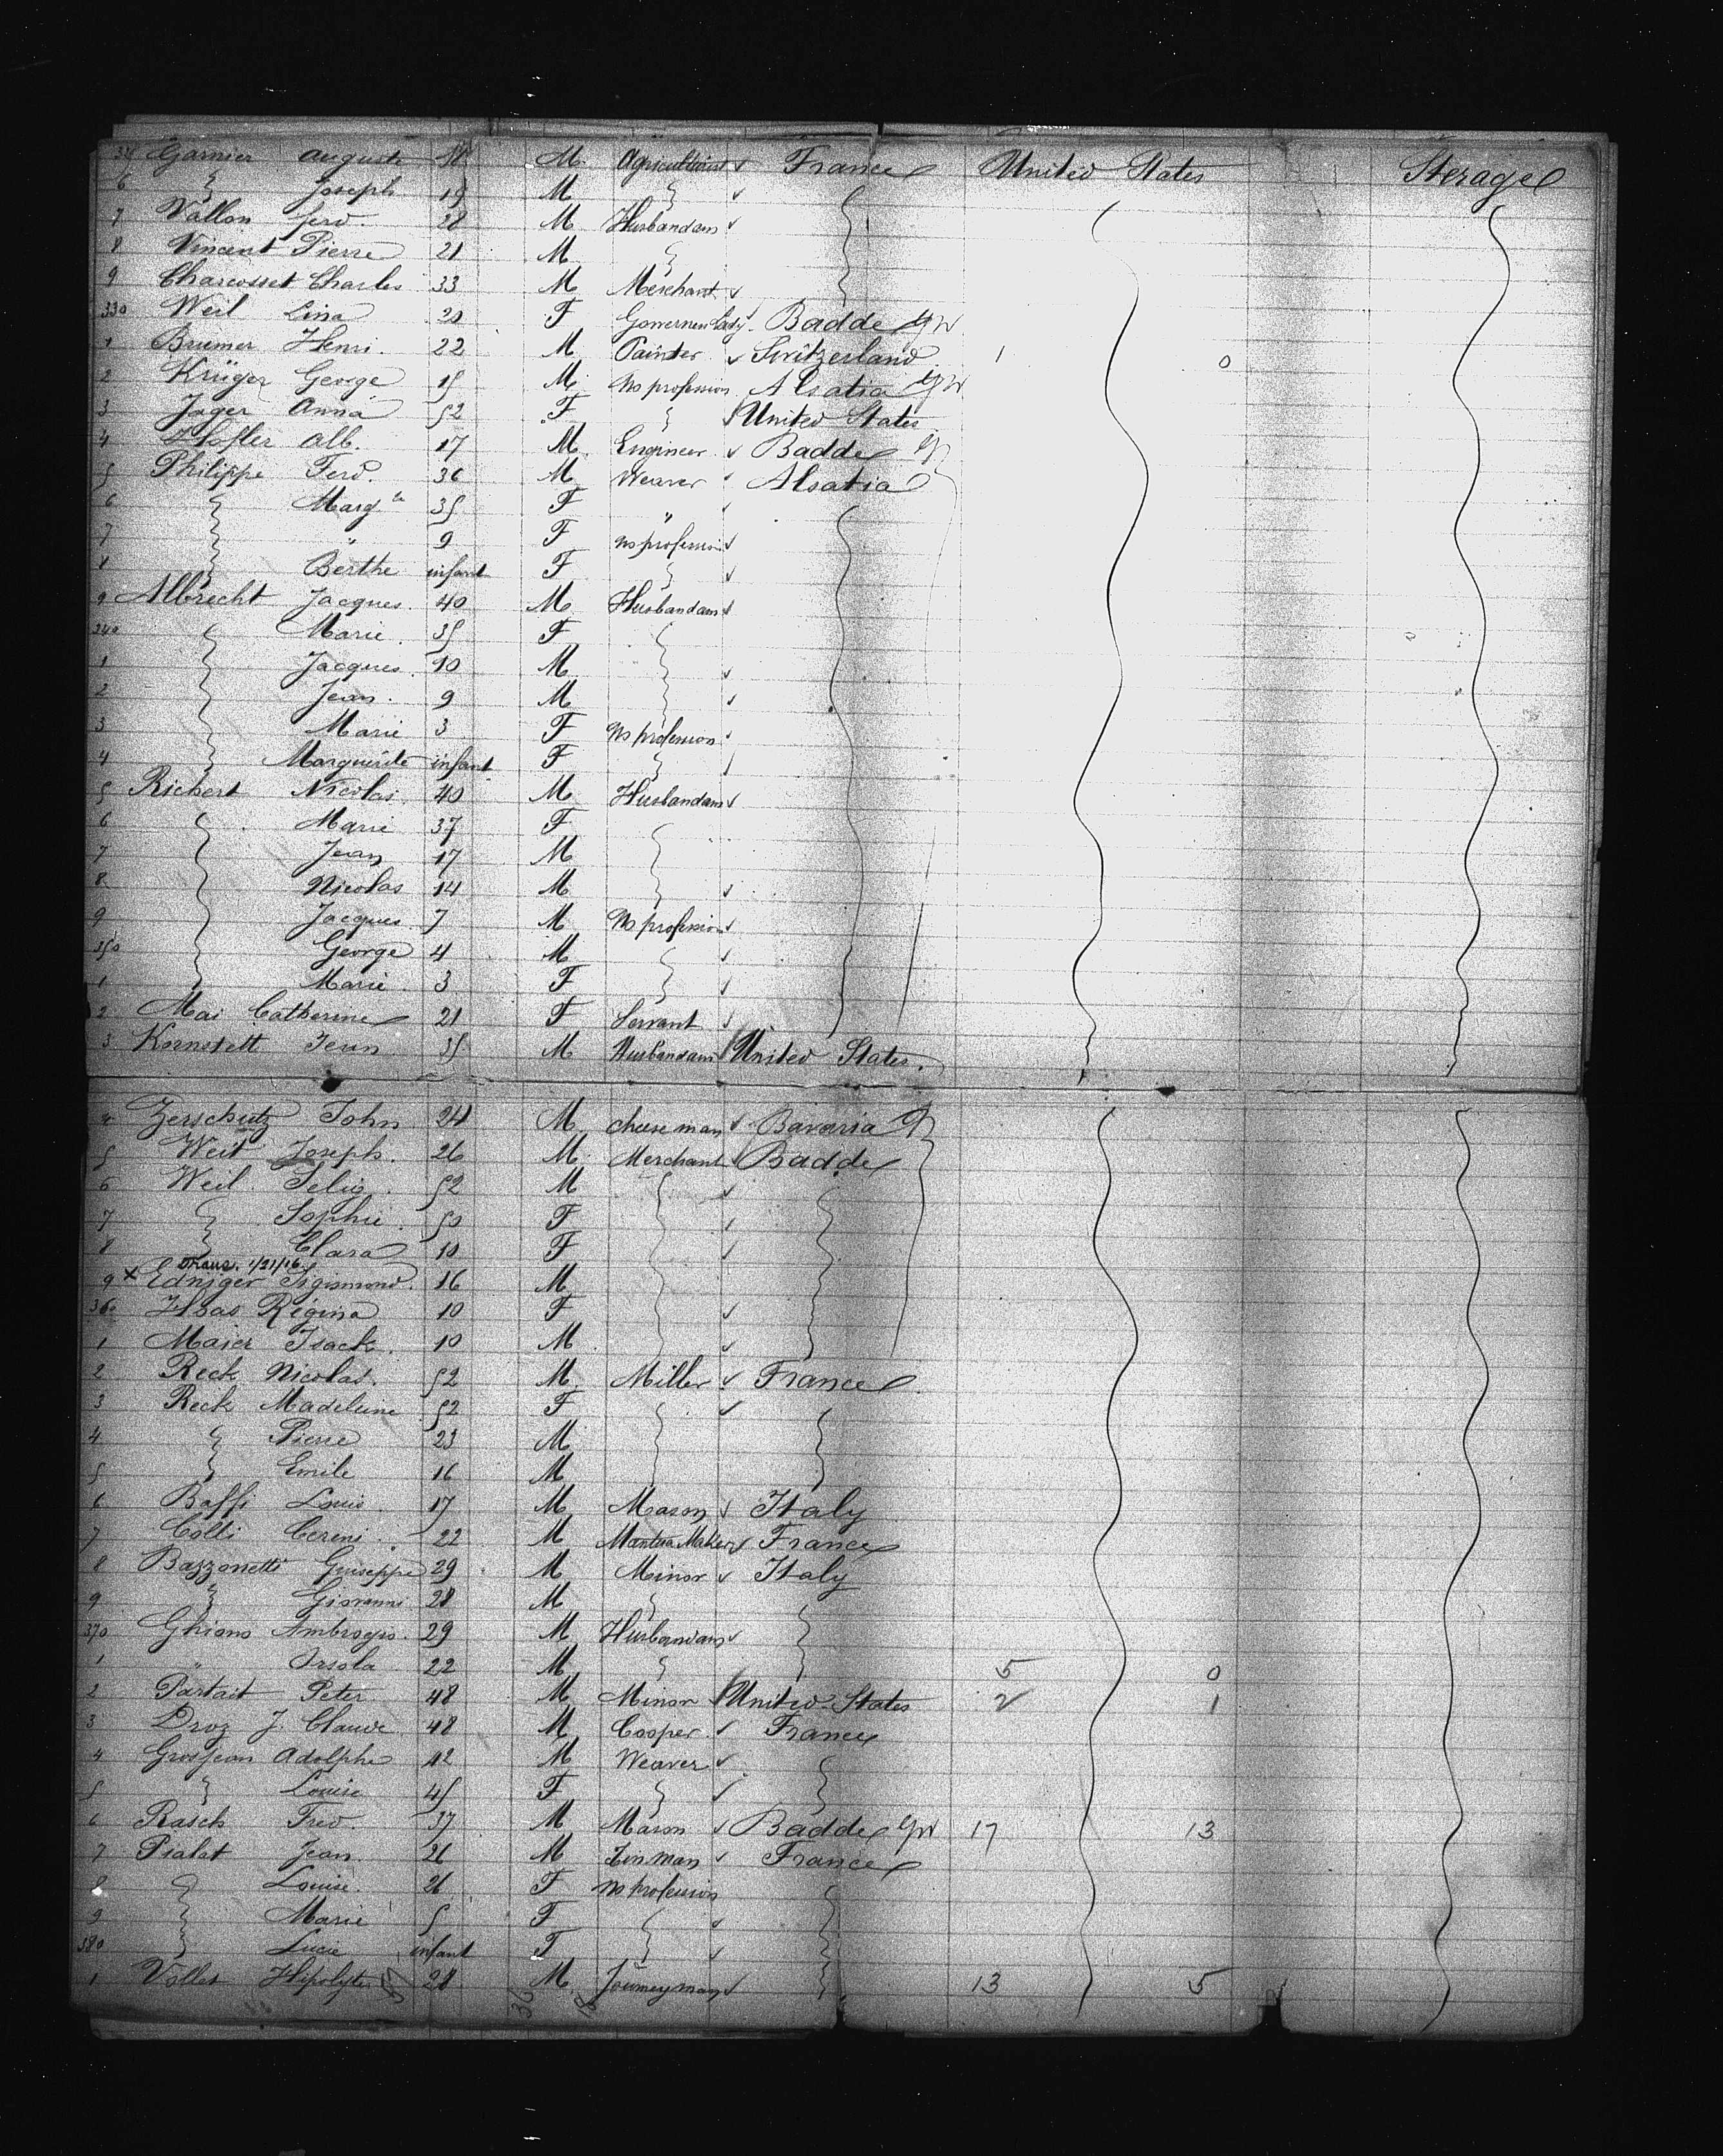 Garnier Auguste M Agriculturist ✓ France United States Sterage
6 " Joseph 19 M " ✓
7 Vallon Ferd. 28 M Husbandam ✓
8 Vincent Pierre 21 M "
9 Charcosset Charles 33 M Merchant ✓
330 Weil Lina 20 F Badde
1 Brumer Henri. 22 M Painter ✓ Switzerland 1 0
2 Krüger George 15 M No profession Alsatia
3 Jager Anna 52 F " United States
4 Alb. 17 M Engineer ✓ Badde
5 Philippe Ferd. 36 M Weaver ✓ Alsatia
6 " Marg.te 35 F "
7 " " 9 F No profession ✓
8 " Berthe infant F " ✓
9 Albrecht Jacques. 40 M Husbandam ✓
340 " Marie. 35 F
1 " Jacques. 10 M ✓
2 " Jean. 9 M ✓
3 " Marie 3 F No profession ✓
4 " Marguerite infant F " ✓
5 Richert Nicolas. 40 M Husbandam ✓
6 " Marie 37 F
7 " Jean 17 M
8 " Nicolas 14 M ✓
9 " Jacques. 7 M No profession ✓
350 " George 4 M ✓
1 " Marie. 3 F ✓
2 Mai Catherine 21 F Servant ✓
3 Kornstett Jean 35 M Husbandam United States.
4 Zerschutz John 24 M cheese man ✓ Bavaria
5 Weil Joseph. 26 M Merchant Badde
6 Weil. 52 M " ✓
7 " Sophie. 50 F ✓
8 " Clara 10 F ✓
1/21/16
9 x Edniger Sigismond. 16 M
360 Haas Régina 10 F ✓
1 Maier Isack. 10 M ✓
2 Reck Nicolas. 52 M Miller ✓ France
3 Reck Madeleine 52 F ✓
4 " Pierre 23 M
5 " Emile 16 M
6 Baffi Louis. 17 M Mason ✓ Italy
7 Colli Cereni. 22 M Mantua Maker ✓ France
8 Bazzonetti Guiseppe 29 M Minor ✓ Italy
9 " Giovanni 28 M "
370 Ghions Ambrogio. 29 M Husbandam ✓
1 " Orsola 22 M " 5 0
2 Partait Peter 48 M Minor United States 2 1
3 Droz J. Claude 48 M Cooper. ✓ France
4 Grosjean Adolphe 42 M Weaver ✓
5 " Louise 45 F " ✓
6 Rasch Fred. 37 M Mason ✓ Badde GW 17 13
7 Pialat Jean 26 M Tin man ✓ France
8 " Louise. 26 F No profession
9 " Marie 5 F ✓
380 " Lucie infant F ✓
1 Vollet Hipolyte 28 M Journeyman ✓ 13 5
36